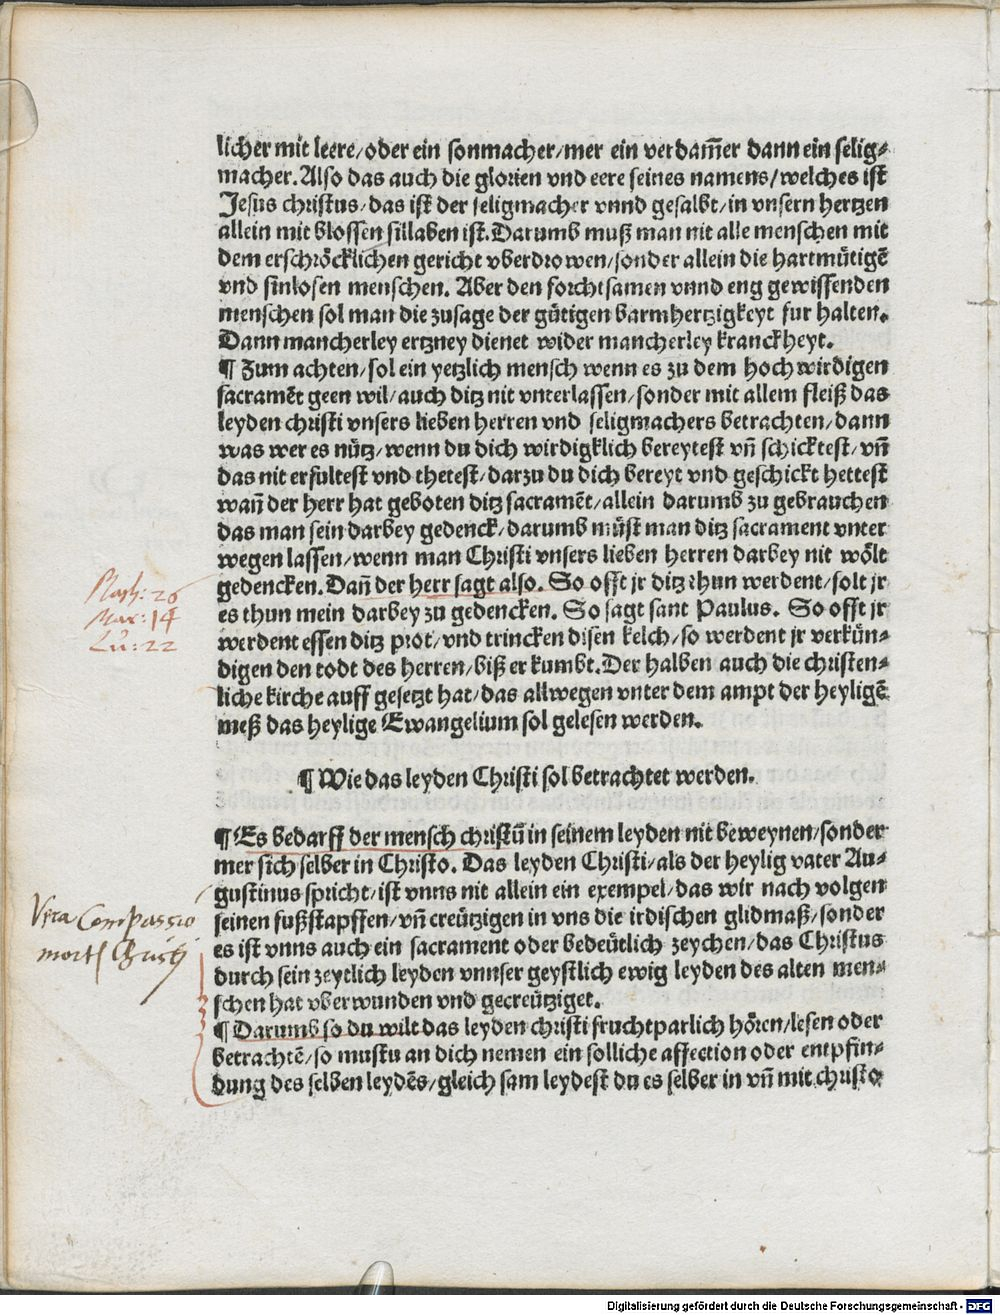 licher mit leere/oder ein sonmacher/mer ein verdam̃er dann ein selig⸗
macher. Also das auch die glorien vnd eere seines namens/welches ist
Jesus christus/das ist der seligmacher vnnd gesalbt/in vnsern hertzen
allein mit blossen sillaben ist. Darumb muß man nit alle menschen mit
dem erschröcklichen gericht vberdrowen/sonder allein die hartmütigē
vnd sinlosen menschen. Aber den forchtsamen vnnd eng gewissenden
menschen sol man die zusage der gütigen barmhertzigkeyt fur halten.
Dann mancherley ertzney dienet wider mancherley kranckheyt.
¶ Zum achten/sol ein yetzlich mensch wenn es zu dem hochwirdigen
sacramēt geen wil/auch ditz nit vnterlassen/sonder mit allem fleiß das
leyden christi vnsers lieben herren vnd seligmachers betrachten/dann
was wer es nütz/wenn du dich wirdigklich bereytest vñ schicktest/vñ
das nit erfultest vnd thetest/darzu du dich bereyt vnd geschickt hettest
wañ der herr hat geboten ditz sacramēt/allein darumb zu gebrauchen
das man sein darbey gedenck/darumb müst man ditz sacrament vnter
wegen lassen/wenn man Christi vnsers lieben herren darbey nit wölt
gedencken. Dañ der herr sagt also. So offt jr ditz thun werdent/solt jr
es thun mein darbey zu gedencken. So sagt sant Paulus. So offt jr
werdent essen ditz prot/vnd trincken disen kelch/so werdent jr verkün⸗
digen den todt des herren/biß er kumbt. Der halben auch die christen⸗
liche kirche auff gesetzt hat/das allwegen vnter dem ampt der heyligē
meß das heylige Ewangelium sol gelesen werden.
Math: 26
Mar: 14
Lu: 22
¶ Wie das leyden Christi sol betrachtet werden.
¶ Es bedarff der mensch christū in seinem leyden nit beweynen/sonder
mer sich selber in Christo. Das leyden Christi/als der heylig vater Au⸗
gustinus spricht/ist vnns nit allein ein exempel/das wir nach volgen
seinen fußstapffen/vñ creützigen in vns die irdischen glidmaß/sonder
es ist vnns auch ein sacrament oder bedeütlich zeychen/das Christus
durch sein zeytlich leyden vnnser geystlich ewig leyden des alten men⸗
schen hat vberwunden vnd gecreütziget.
Vera Compassio
mort Christi
¶ Darumb so du wilt das leyden christi fruchtparlich hören/lesen oder
betrachtē/so mustu an dich nemen ein solliche affection oder entpfin⸗
dung des selben leydēs/gleich sam leydest du es selber in vñ mit christo
Digitalisierung gefördert durch die Deutsche Forschungsgemeinschaft - DFG